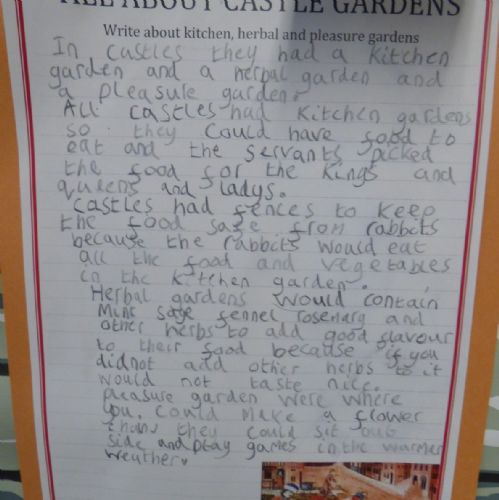 ALL ABOUT CASTLE GARDENS
Write about kitchen, herbal and pleasure gardens
In castles they had a kitchen
garden and a herbal garden and
a pleasure garden.
All castles had kitchen gardens
so they could have food to
eat and the servants picked
the food for the kings and
queens and ladys.
Castles had fences to keep
the food safe from rabbits
because the rabbits would eat
all the food and vegetables
in the kitchen garden.
Herbal gardens would contain
Mint sage fennel rosemary and
other herbs to add good flavour
to their food because if you
didnot add other herbs to it
would not taste nice.
pleasure garden were where
you could make a flower
they could sit out
side and play games in the warmer
weather.